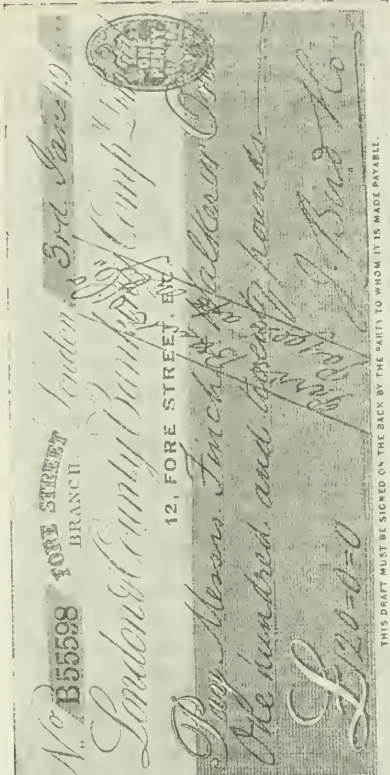 No. B55598 FORE STREET BRANCH London 3rd Jany 19
London & County Bank Compy Ltd
12, FORE STREET, E.C.
Pay Messrs. Finch & Walker or Order
One hundred and twenty pounds
£120-0-0 J. Bird & Co
THIS DRAFT MUST BE SIGNED ON THE BACK BY THE PARTY TO WHOM IT IS MADE PAYABLE.